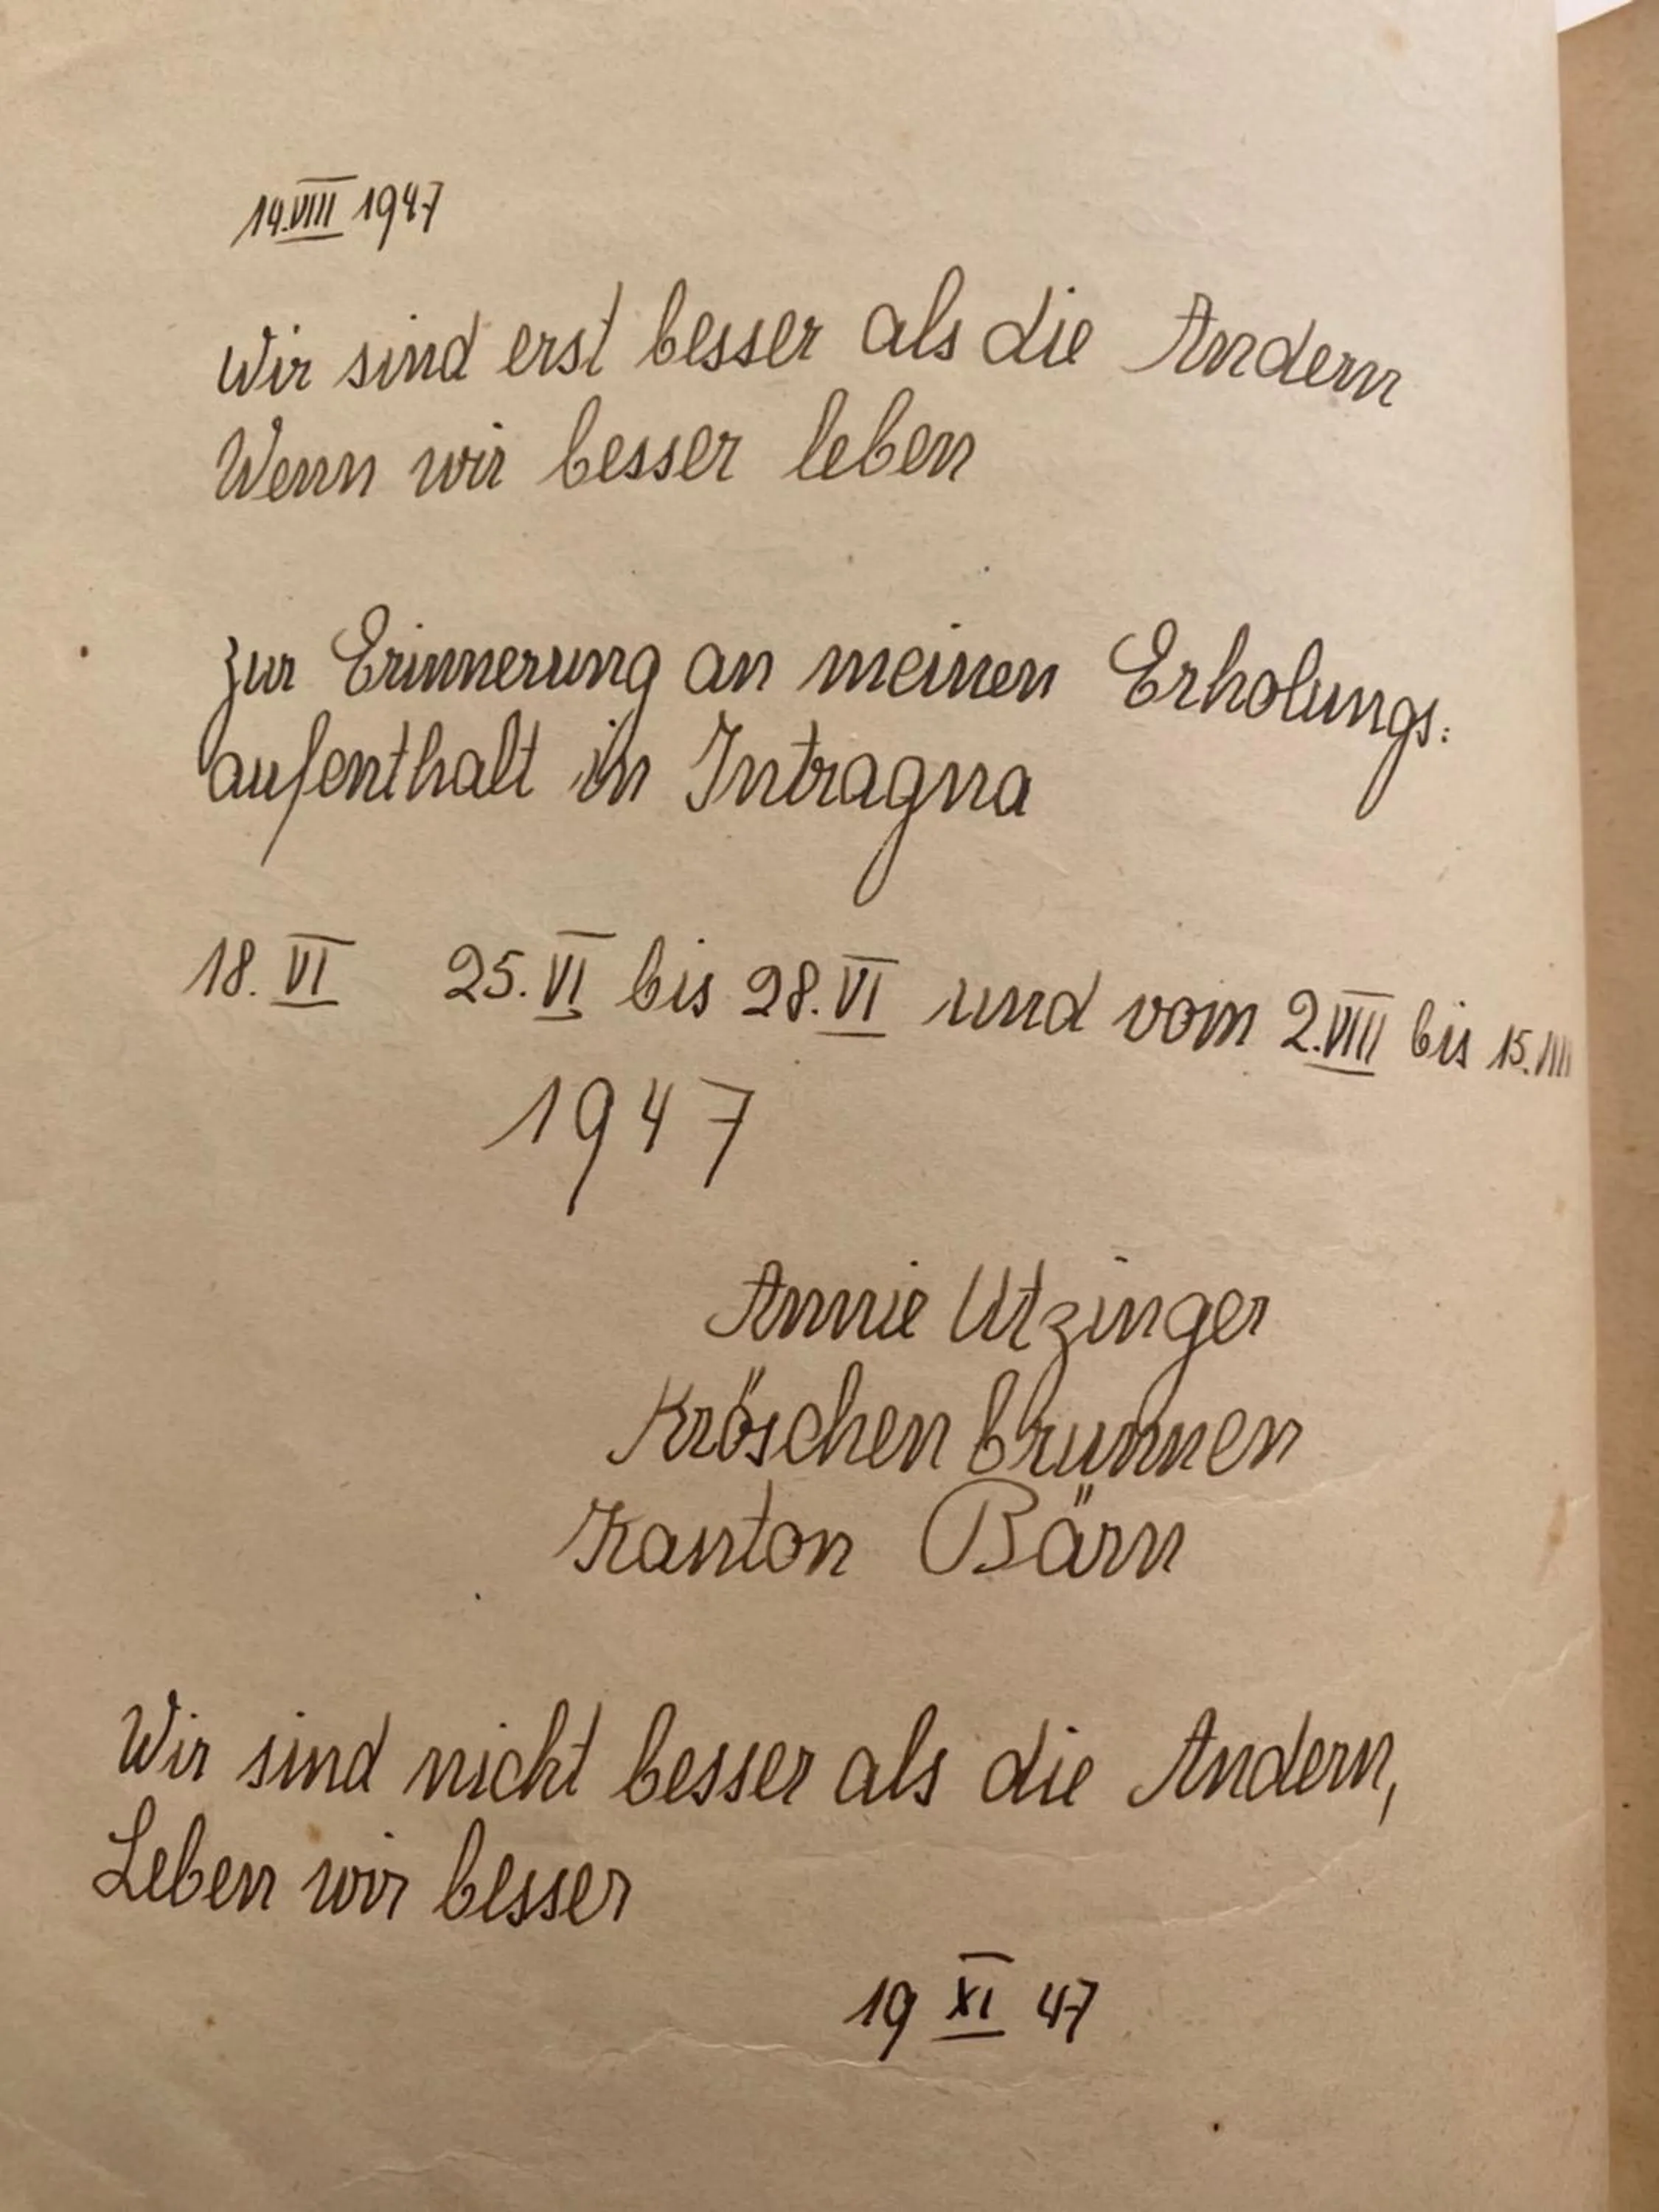 14.VIII 1947
Wir sind erst besser als die Andern
Wenn wir besser leben
zur Erinnerung an meinen Erholungs:
aufenthalt in Intragna
18. VI 25. VI bis 28. VI und vom 2. VIII bis 15. VIII
1947
Annie Utzinger
Kröschenbrunnen
Kanton Bärn
Wir sind nicht besser als die Andern,
Leben wir besser
19 XI 47